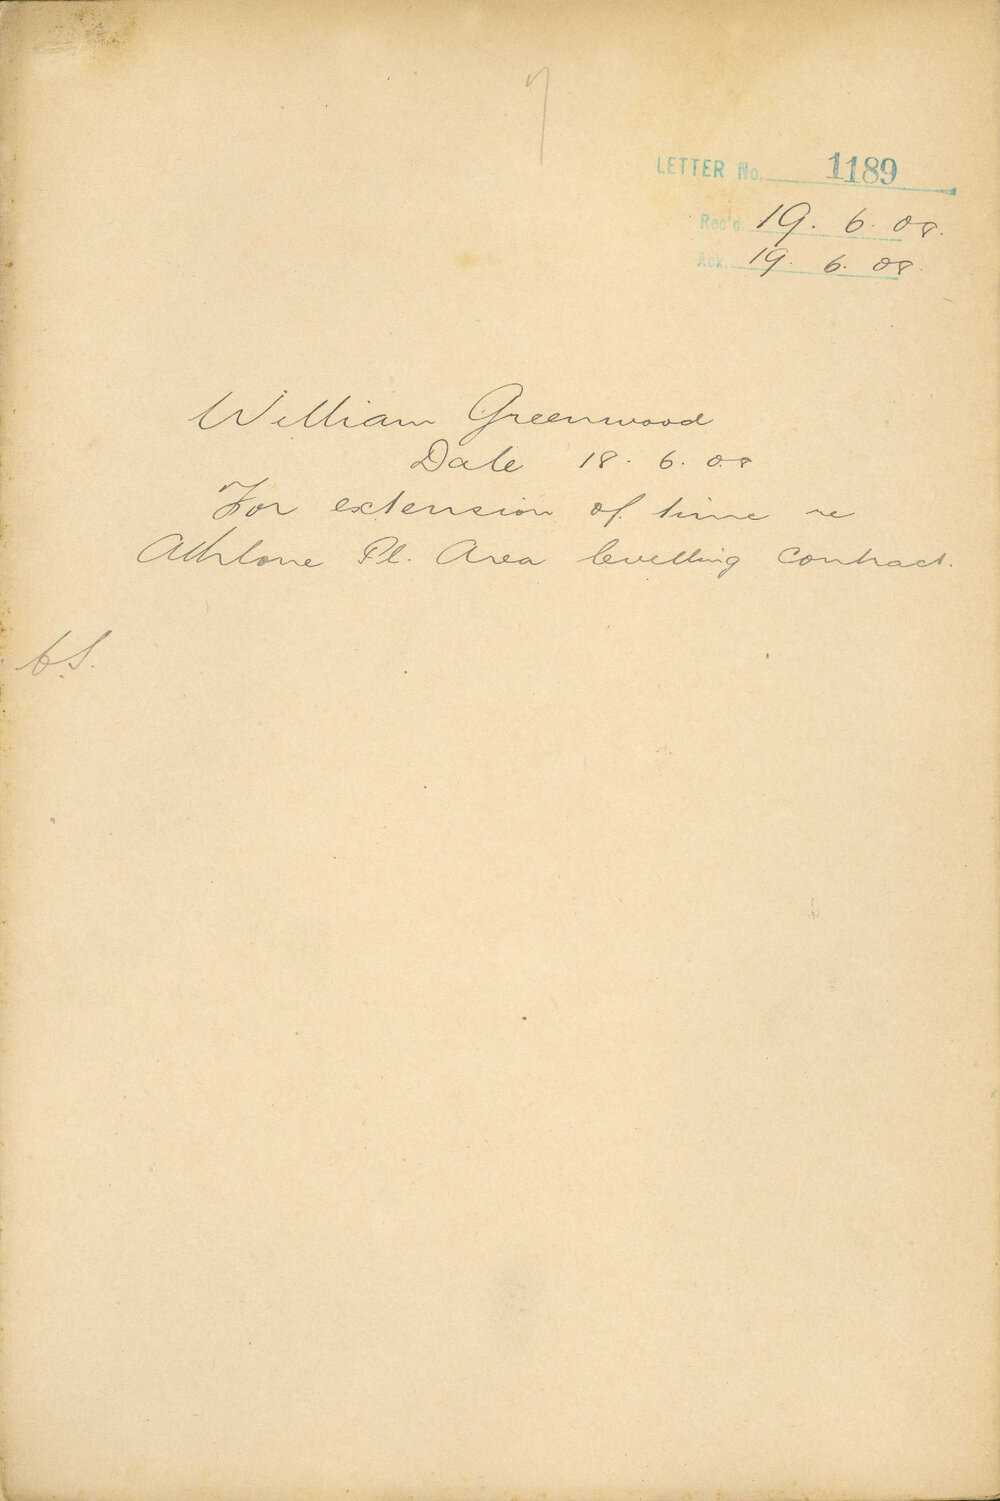 7
LETTER No. 1189
Rec'd 19. 6. 08.
Ack. 19. 6. 08.
William Greenwood
Date 18. 6. 08
For extension of time re
Athlone Pl. Area levelling contract.